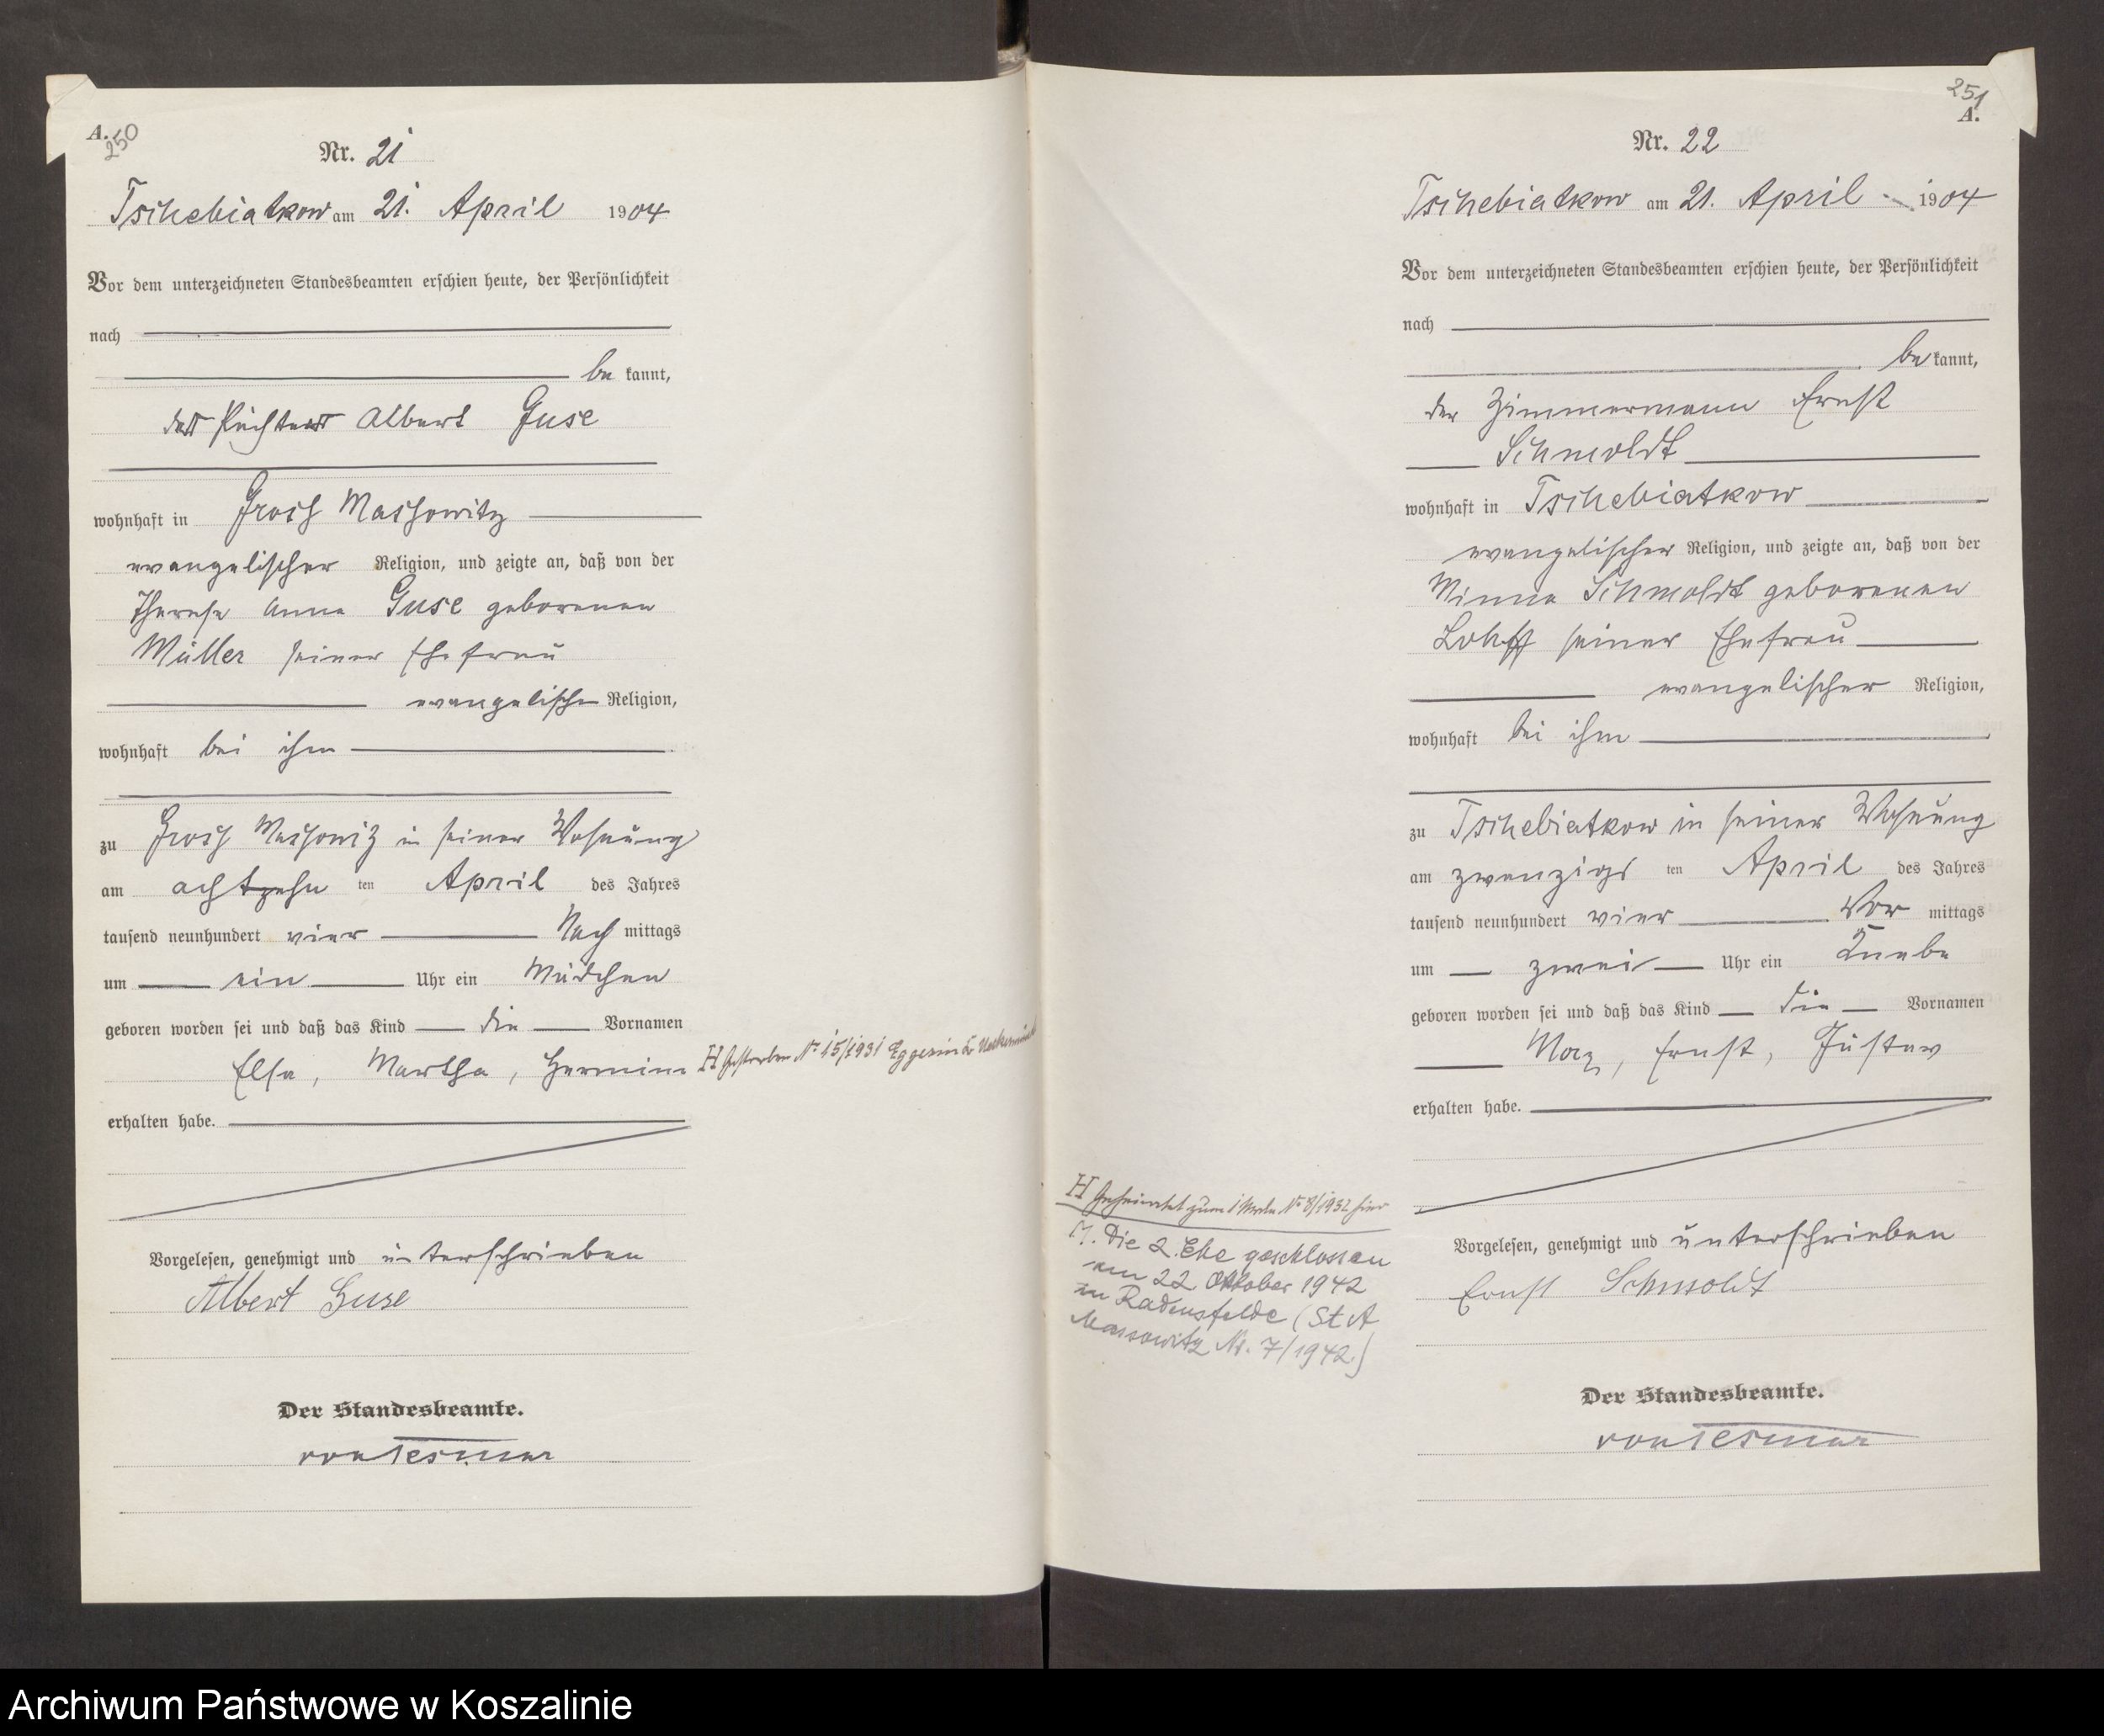 A.
250
Nr. 21
Tschebiatkow am 21. April 1904
Vor dem unterzeichneten Standesbeamten erschien heute, der Persönlichkeit
nach
be kannt,
der Pächter Albert Guse
wohnhaft in Gross Massowitz
evangelischer Religion, und zeigte an, daß von der
Therese Anna Guse geborenen
Müller seiner Ehefrau
evangelischer Religion,
wohnhaft bei ihm
zu Gross Massowitz in seiner Wohnung
am achtzehn ten April des Jahres
tausend neunhundert vier Nach mittags
um ein Uhr ein Mädchen
geboren worden sei und daß das Kind die Vornamen
Elsa, Martha, Hermine
H Gestorben Nr 15/1931 Eggesin Kr Ueckermünde
erhalten habe.
Vorgelesen, genehmigt und unterschrieben
Albert Guse
Der Standesbeamte.
von Tesmar
251
A.
Nr. 22
Tschebiatkow am 21. April 1904
Vor dem unterzeichneten Standesbeamten erschien heute, der Persönlichkeit
nach
be kannt,
der Zimmermann Ernst
Schmoldt
wohnhaft in Tschebiatkow
evangelischer Religion, und zeigte an, daß von der
Minna Schmoldt geborenen
Lohff seiner Ehefrau
evangelischer Religion,
wohnhaft bei ihm
zu Tschebiatkow in seiner Wohnung
am zwanzigs ten April des Jahres
tausend neunhundert vier Vor mittags
um zwei Uhr ein Knabe
geboren worden sei und daß das Kind die Vornamen
Max, Ernst, Gustav
erhalten habe.
H Geheiratet zum 1 Male Nr 8/1932 hier
M. Die 2. Ehe geschlossen
am 22 Oktober 1942
in Radensfelde (St A
Massowitz Nr. 7/1942.)
Vorgelesen, genehmigt und unterschrieben
Ernst Schmoldt
Der Standesbeamte.
von Tesmar
Archiwum Państwowe w Koszalinie